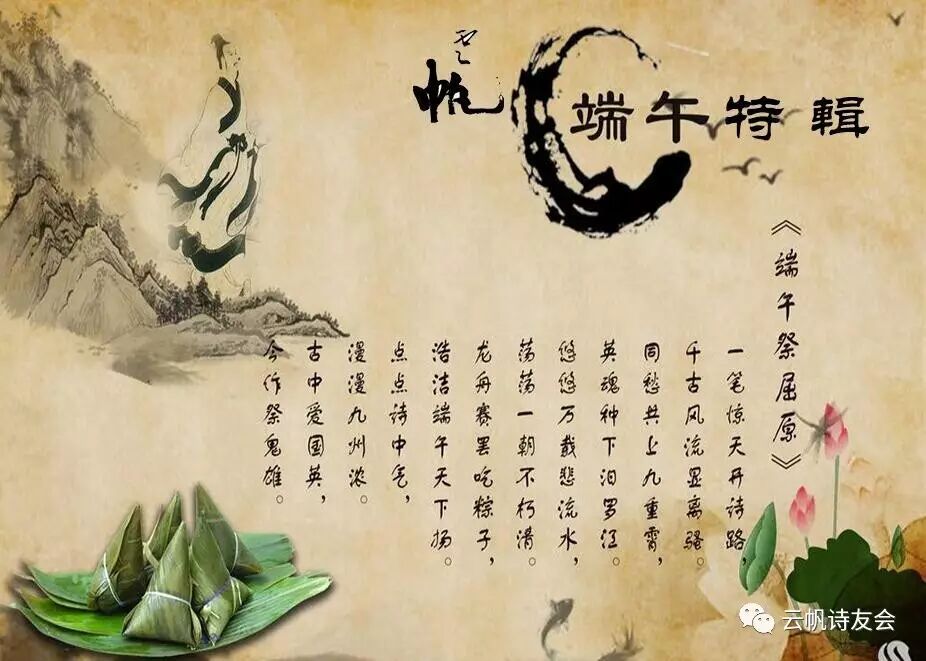 云帆
端午特輯
《端午祭屈原》
一笔惊天开诗路，
千古风流显离骚。
同愁共上九重霄，
英魂种下汨罗江。
悠悠万载悲流水，
荡荡一朝不朽清。
龙舟赛罢吃粽子，
浩洁端午天下扬。
点点诗中气，
漫漫九州浓。
古中爱国英，
今作祭鬼雄。
云帆诗友会